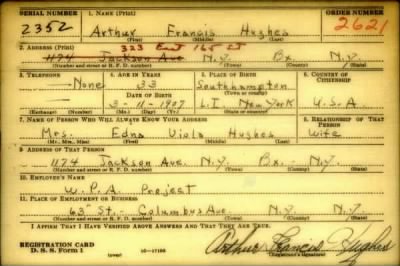 SERIAL NUMBER 1. NAME (Print) ORDER NUMBER
2352 Arthur Francis Hughes 2621
(First) (Middle) (Last)
2. ADDRESS (Print) 323 East 165 St
1174 Jackson Ave N.Y. Bx. N.Y.
(Number and street or R. F. D. number) (Town) (County) (State)
3. TELEPHONE 4. AGE IN YEARS 5. PLACE OF BIRTH 6. COUNTRY OF CITIZENSHIP
None 33 Southhampton
DATE OF BIRTH
3-11-1907 L.I. New York U.S.A.
(Exchange) (Number) (Mo.) (Day) (Yr.) (Town or county) (State or country)
7. NAME OF PERSON WHO WILL ALWAYS KNOW YOUR ADDRESS 8. RELATIONSHIP OF THAT PERSON
Mrs. Edna Viola Hughes Wife
(Mr., Mrs., Miss) (First) (Middle) (Last)
9. ADDRESS OF THAT PERSON
1174 Jackson Ave. N.Y. Bx. N.Y.
(Number and street or R. F. D. number) (Town) (County) (State)
10. EMPLOYER'S NAME
W.P.A. Project
11. PLACE OF EMPLOYMENT OR BUSINESS
63rd St. - Columbus Ave N.Y. N.Y.
(Number and street or R. F. D. number) (Town) (County) (State)
I AFFIRM THAT I HAVE VERIFIED ABOVE ANSWERS AND THAT THEY ARE TRUE.
REGISTRATION CARD
D. S. S. Form 1 (over) 16-17105 Arthur Francis Hughes
(Registrant's signature)